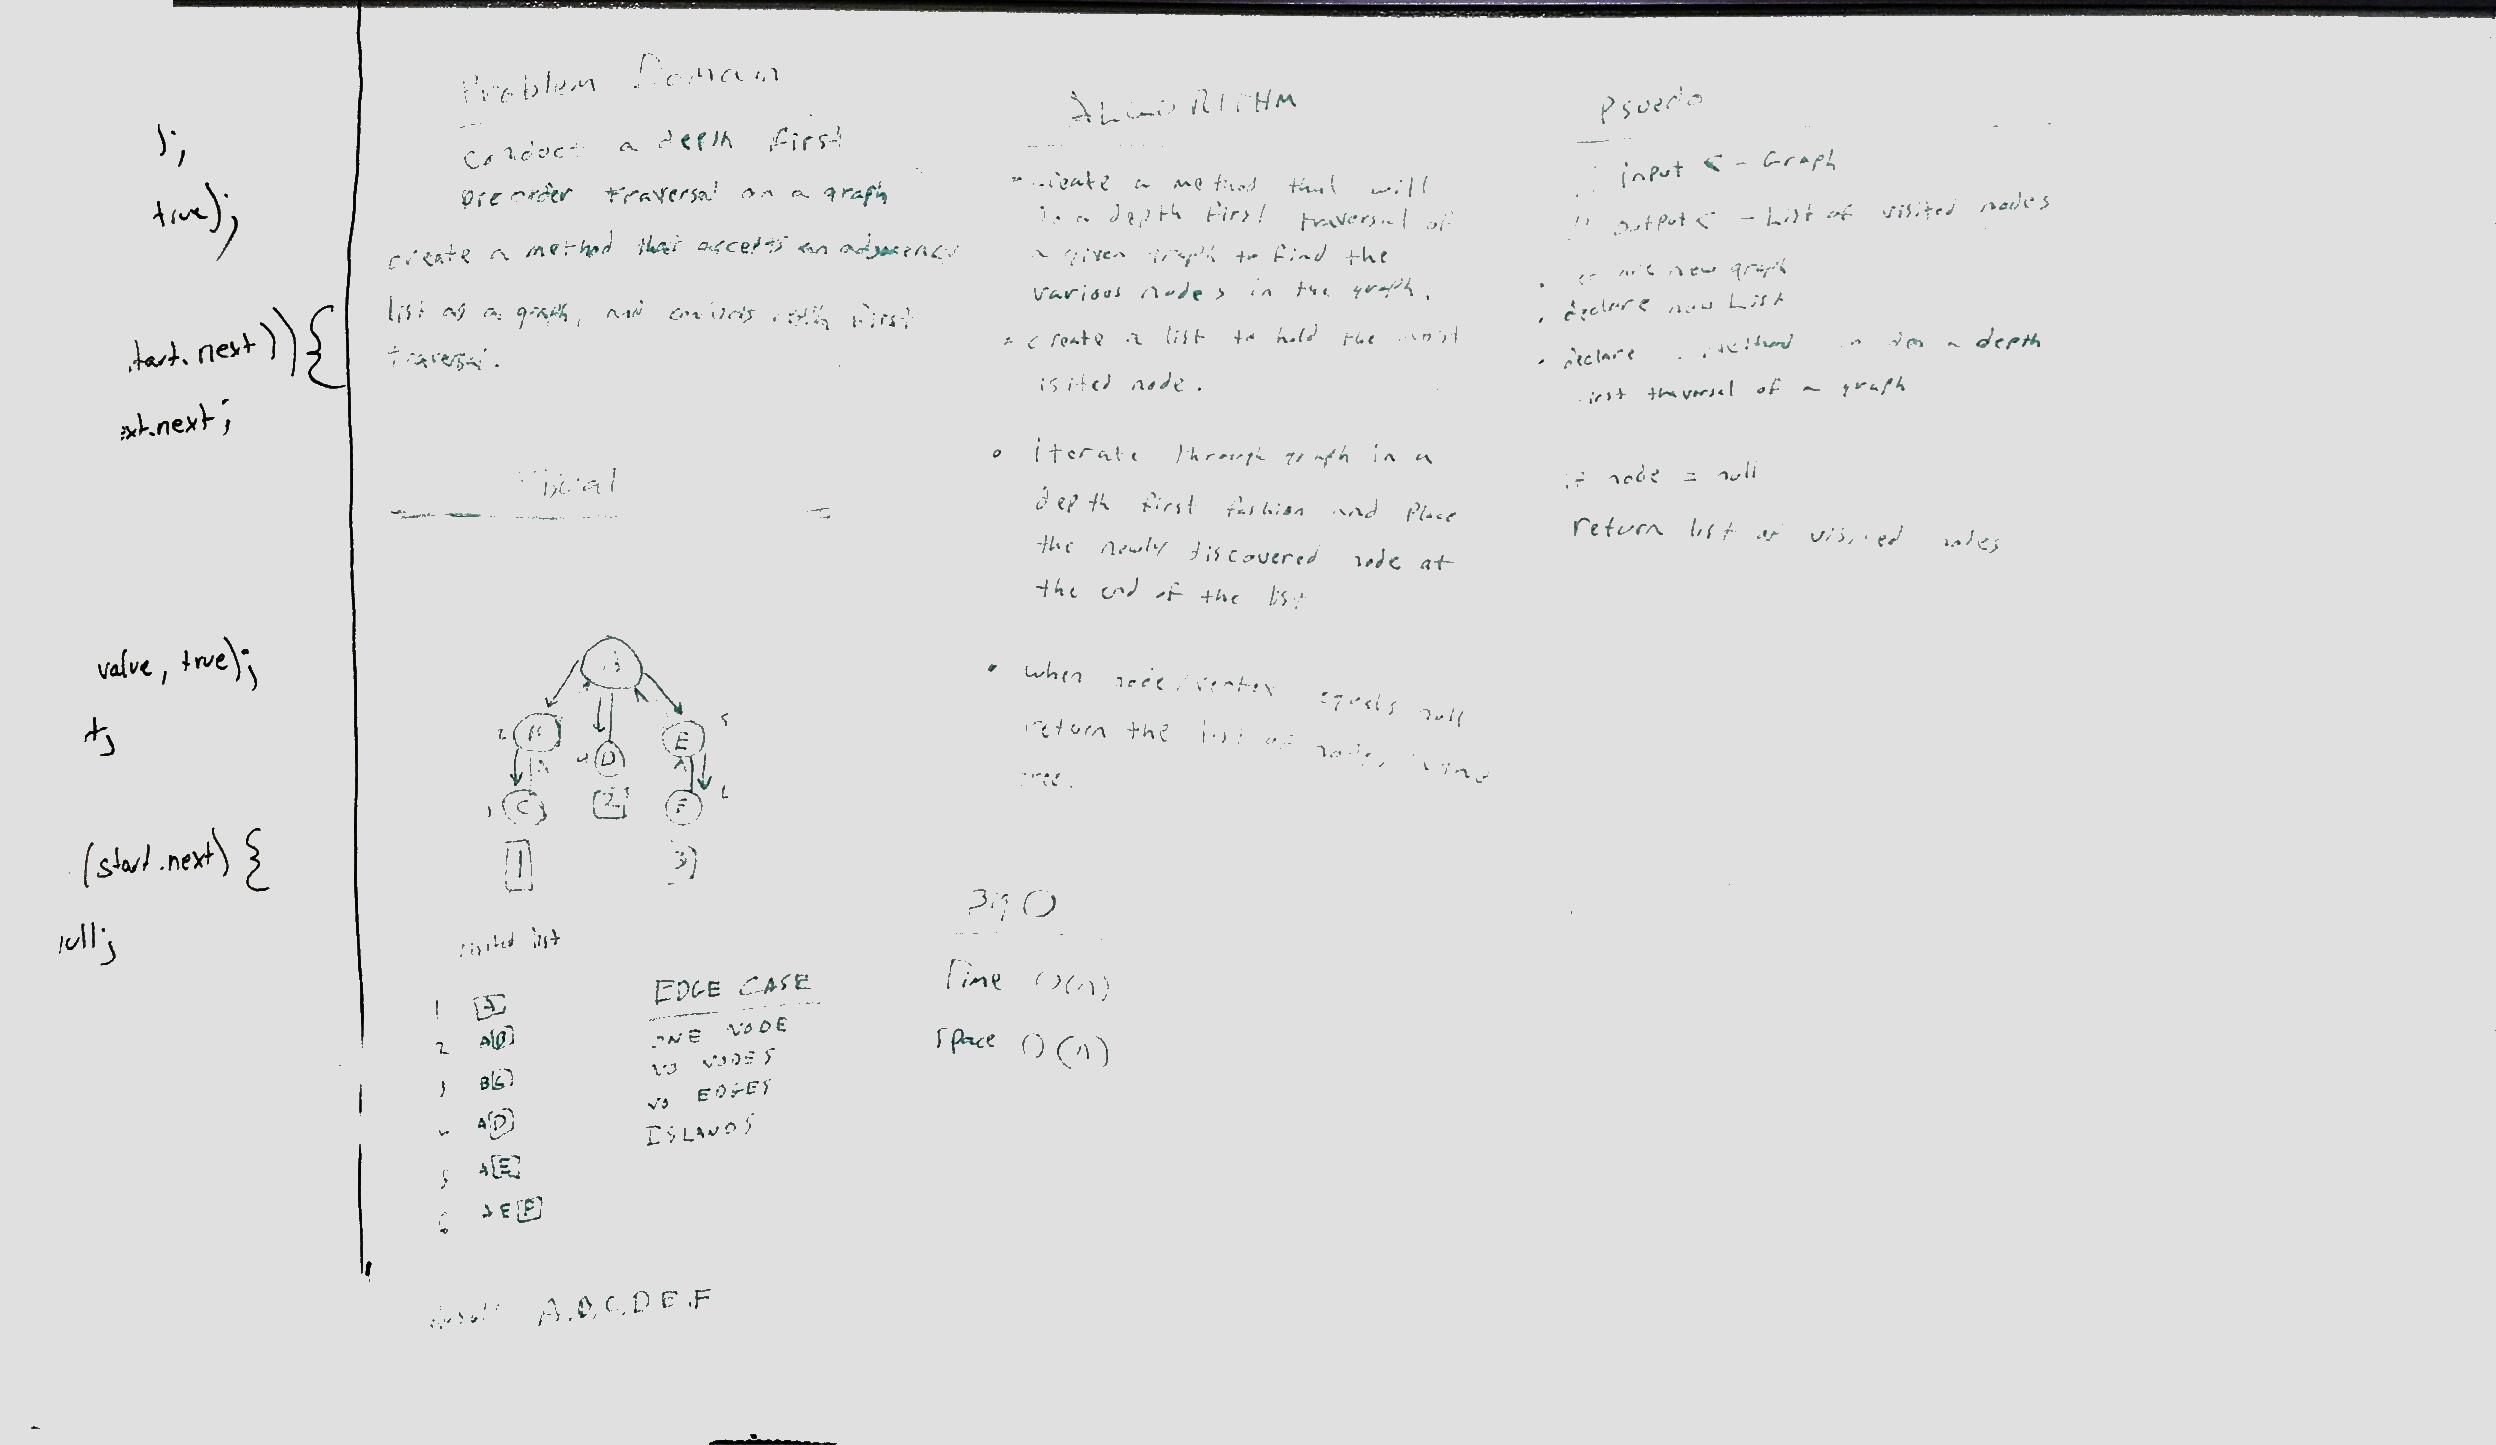 );
true);
.tart.next)){
xt.next;
value, true);
t;
(start.next) {
ull;
Problem Domain
Conduct a depth first
pre order traversal on a graph
create a method that accepts an adjacency
list as a graph, and conducts depth first
traversal.
Visual
A
2 B
E 5
4 D
3 C
2
F 6
1
3
visited list
1 A
2 A B
3 B C
4 A D
5 A E
6 A E F
Result A.B.C.D E.F
EDGE CASE
ONE NODE
NO NODES
NO EDGES
ISLANDS
ALGORITHM
create a method that will
do a depth first traversal of
a given graph to find the
various nodes in the graph.
create a list to hold the
isited node.
iterate through graph in a
depth first fashion and place
the newly discovered node at
the end of the list
when node/vertex equals null
return the list of nodes in the
tree.
Big O
Time O(n)
Space O(n)
Psuedo
input <- Graph
output <- List of visited nodes
new graph
declare new List
declare method depth
first traversal of a graph
if node = null
return list of visited nodes